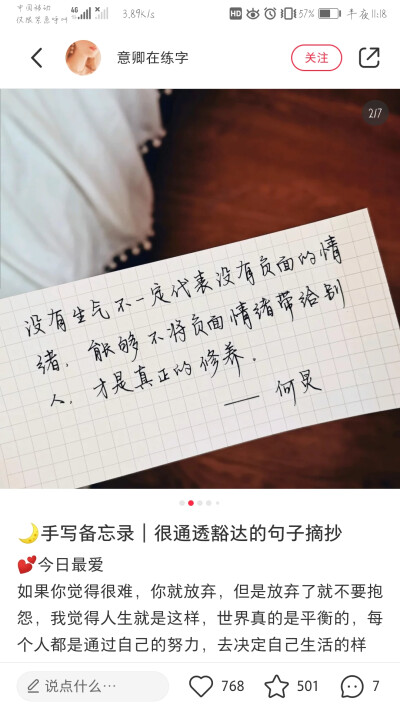 中国移动
仅限紧急呼叫
4G
3.89K/s
HD
57%
半夜11:18
意卿在练字
关注
2/7
没有生气不一定代表没有负面的情
绪，能够不将负面情绪带给别
人，才是真正的修养。
—— 何炅
🌙手写备忘录｜很通透豁达的句子摘抄
💕今日最爱
如果你觉得很难，你就放弃，但是放弃了就不要抱
怨，我觉得人生就是这样，世界真的是平衡的，每
个人都是通过自己的努力，去决定自己生活的样
说点什么…
768
501
7